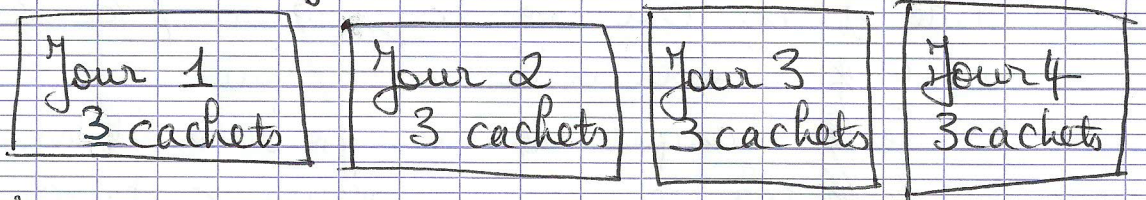 Jour 1
3 cachets
Jour 2
3 cachets
Jour 3
3 cachets
Jour 4
3 cachets